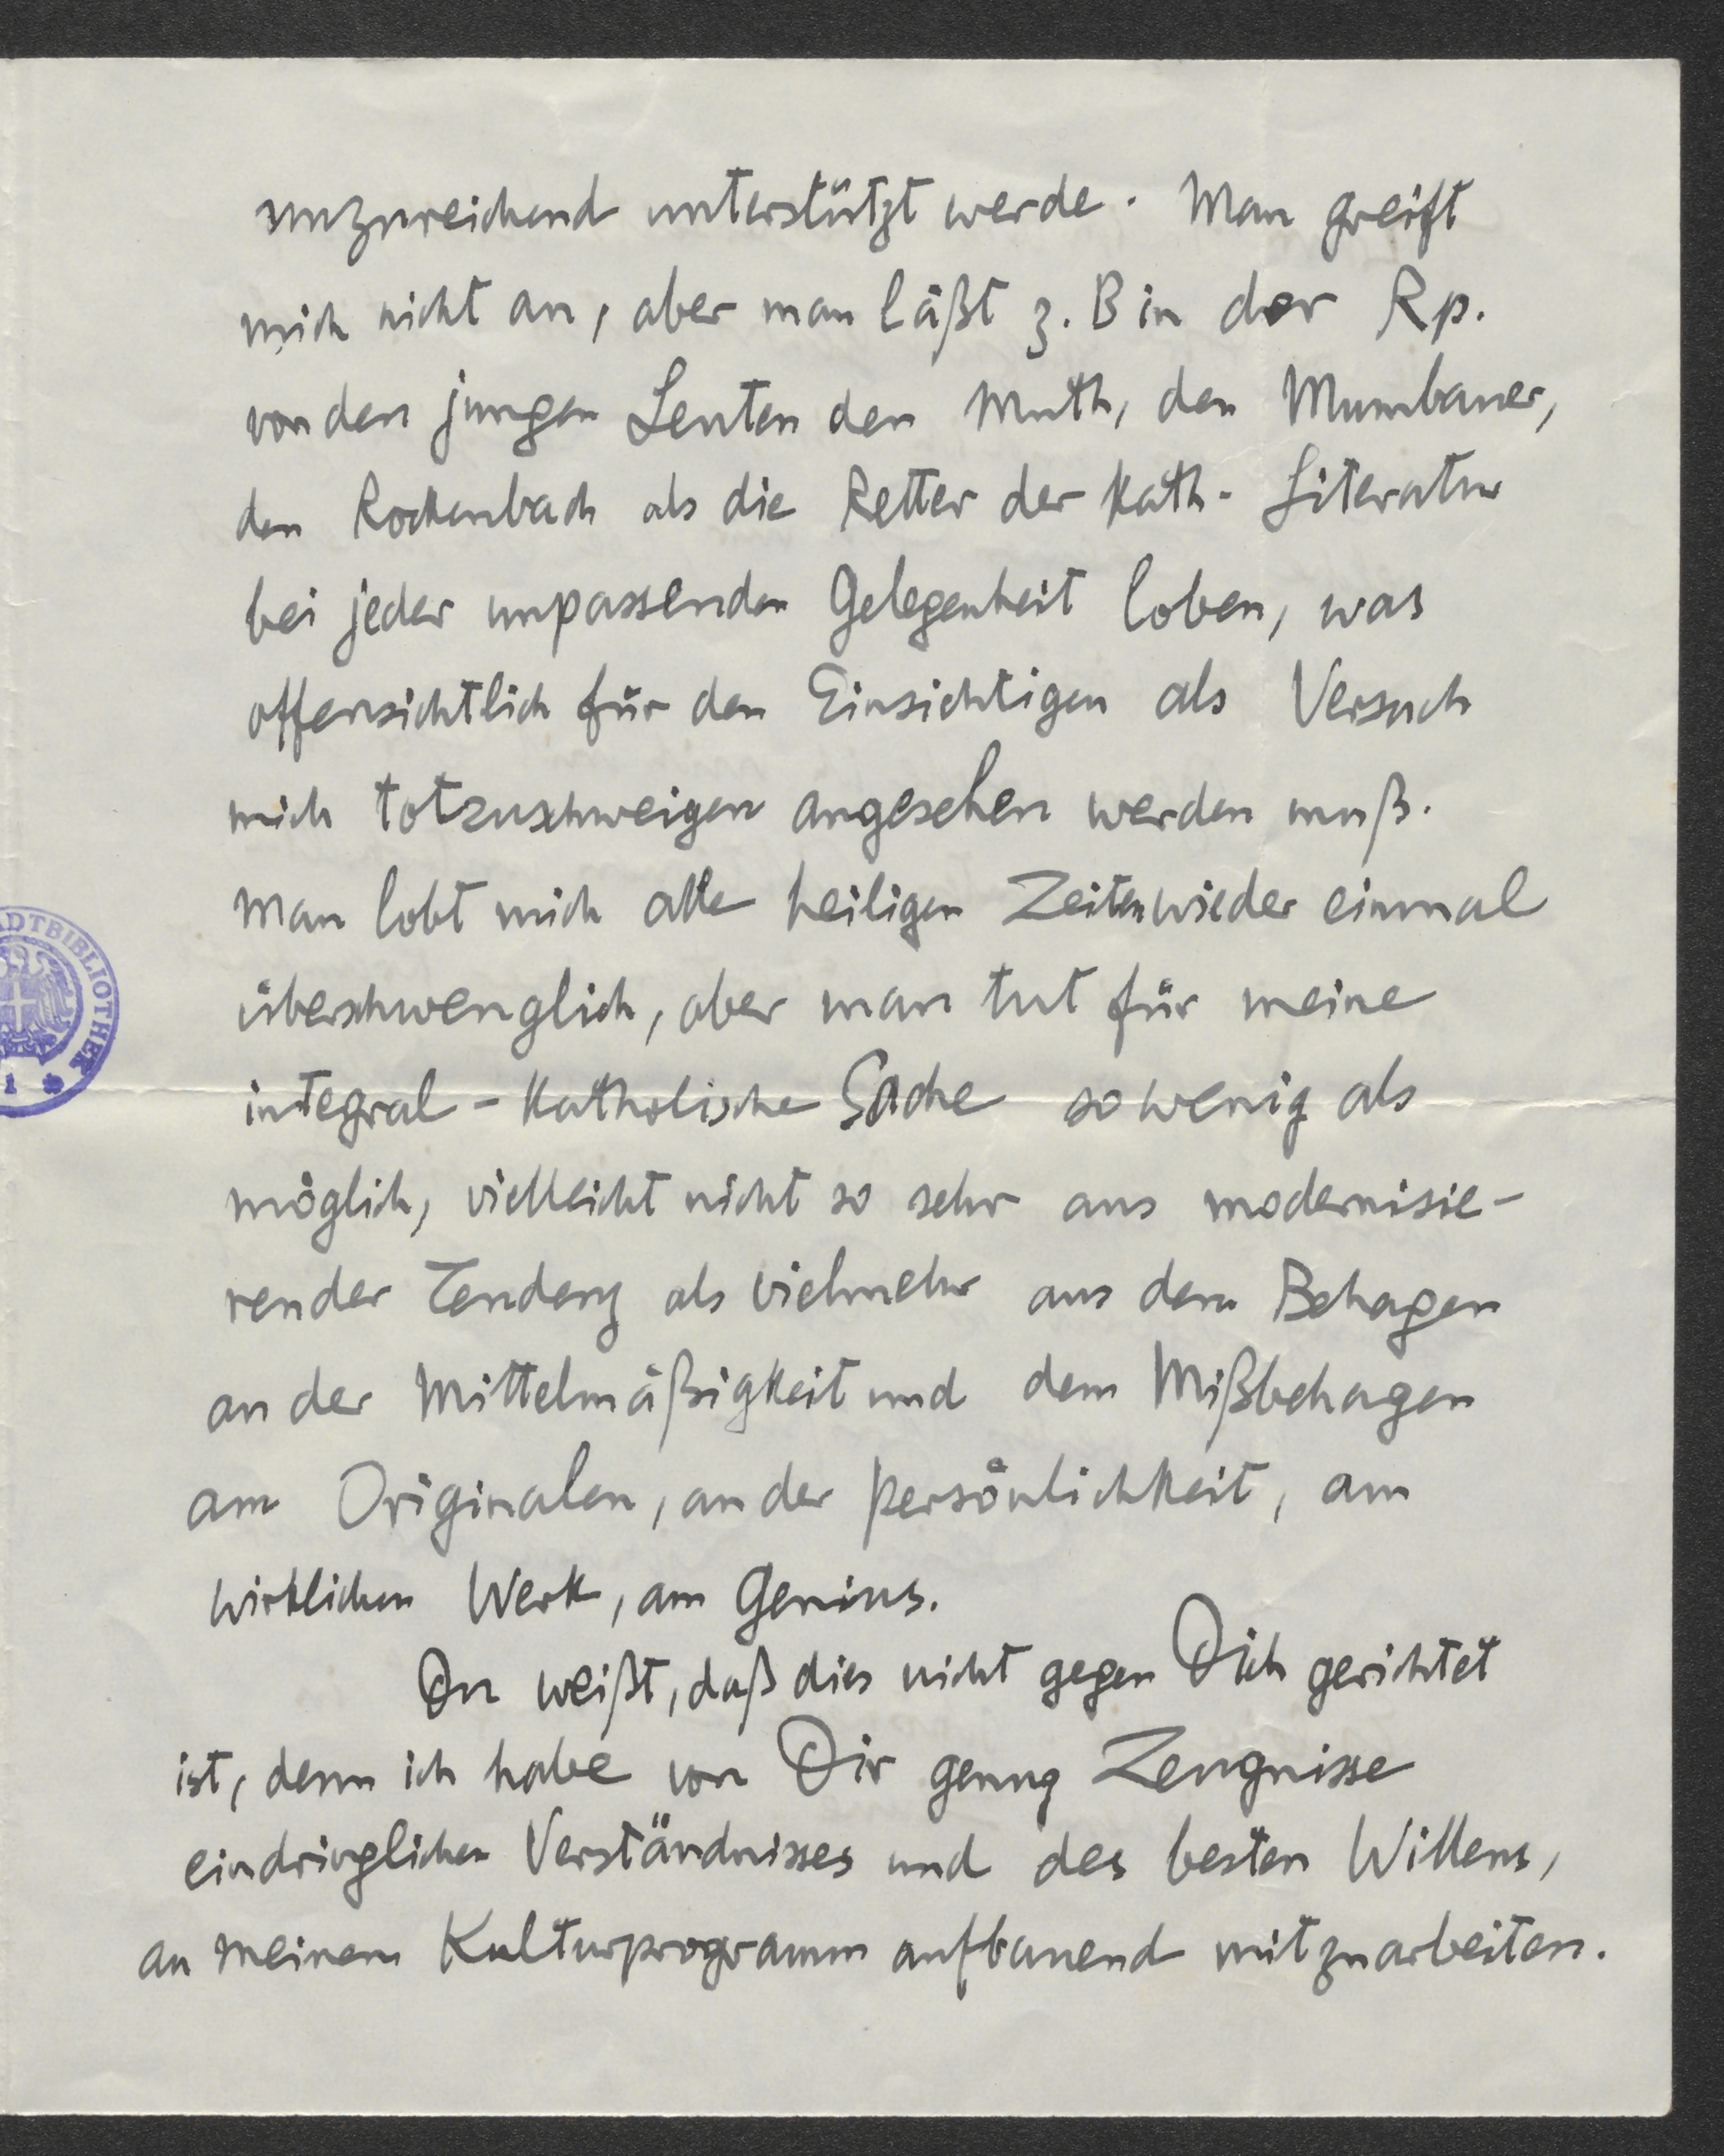 unzureichend unterstützt werde. Man greift
mich nicht an, aber man läßt z. B in der Rp.
von den jungen Leuten den Muth, den Mumbauer,
den Rockenbach als die Retter der kath. Literatur
bei jeder unpassenden Gelegenheit loben, was
offensichtlich für den Einsichtigen als Versuch
mich totzuschweigen angesehen werden muß.
Man lobt mich alle heiligen Zeiten wieder einmal
überschwenglich, aber man tut für meine
integral-katholische Sache so wenig als
möglich, vielleicht nicht so sehr aus modernisie-
render Tendenz als vielmehr aus dem Behagen
an der Mittelmäßigkeit und dem Mißbehagen
am Originalen, an der Persönlichkeit, am
wirklichen Werk, am Genius.
Du weißt, daß dies nicht gegen Dich gerichtet
ist, denn ich habe von Dir genug Zeugnisse
eindringlichen Verständnisses und des besten Willens,
an meinem Kulturprogramm aufbauend mitzuarbeiten.
ADTBIBLIOTHEK